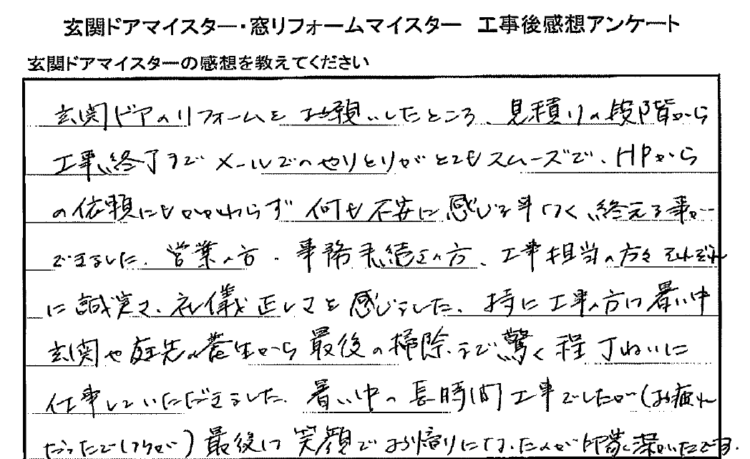 玄関ドアマイスター・窓リフォームマイスター 工事後感想アンケート
玄関ドアマイスターの感想を教えてください
玄関ドアのリフォームをお願いしたところ、見積りの段階から
工事終了までメールでのやりとりがとてもスムーズで、HPから
の依頼にもかかわらず何も不安に感じる事なく終える事が
できました。営業の方、事務手続きの方、工事担当の方々それぞれ
に誠実さ、礼儀正しさを感じました。特に工事の方は暑い中
玄関や庭先の養生から最後の掃除まで驚く程丁ねいに
仕事していただきました。暑い中の長時間工事でしたが(お疲れ
だったでしょうが)最後は笑顔でお帰りになったのが印象深かったです。